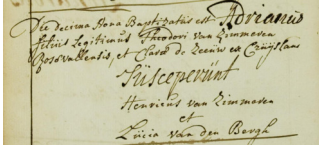 Die decima Nona Baptizatus est Adrianus
filius Legitimus Theodori van Zimmeren
Rosovallensis, et Clara de Zeeuw ex
Susceperunt
Henricus van Zimmeren
et
Lucia van den Bergh